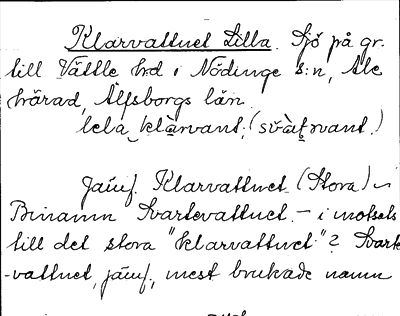 Klarvattnet Lilla. Sjö på gr.
till Vättle hd i Nödinge s:n, Ale
härad, Älfsborgs län.
lela klàrvant. (svàṭrvant.)
Jämf. Klarvattnet (Stora)
Binamn Svartevattnet. – i motsats
till det stora "klarvattnet"? Svarte
-vattnet, jämf., mest brukade namn